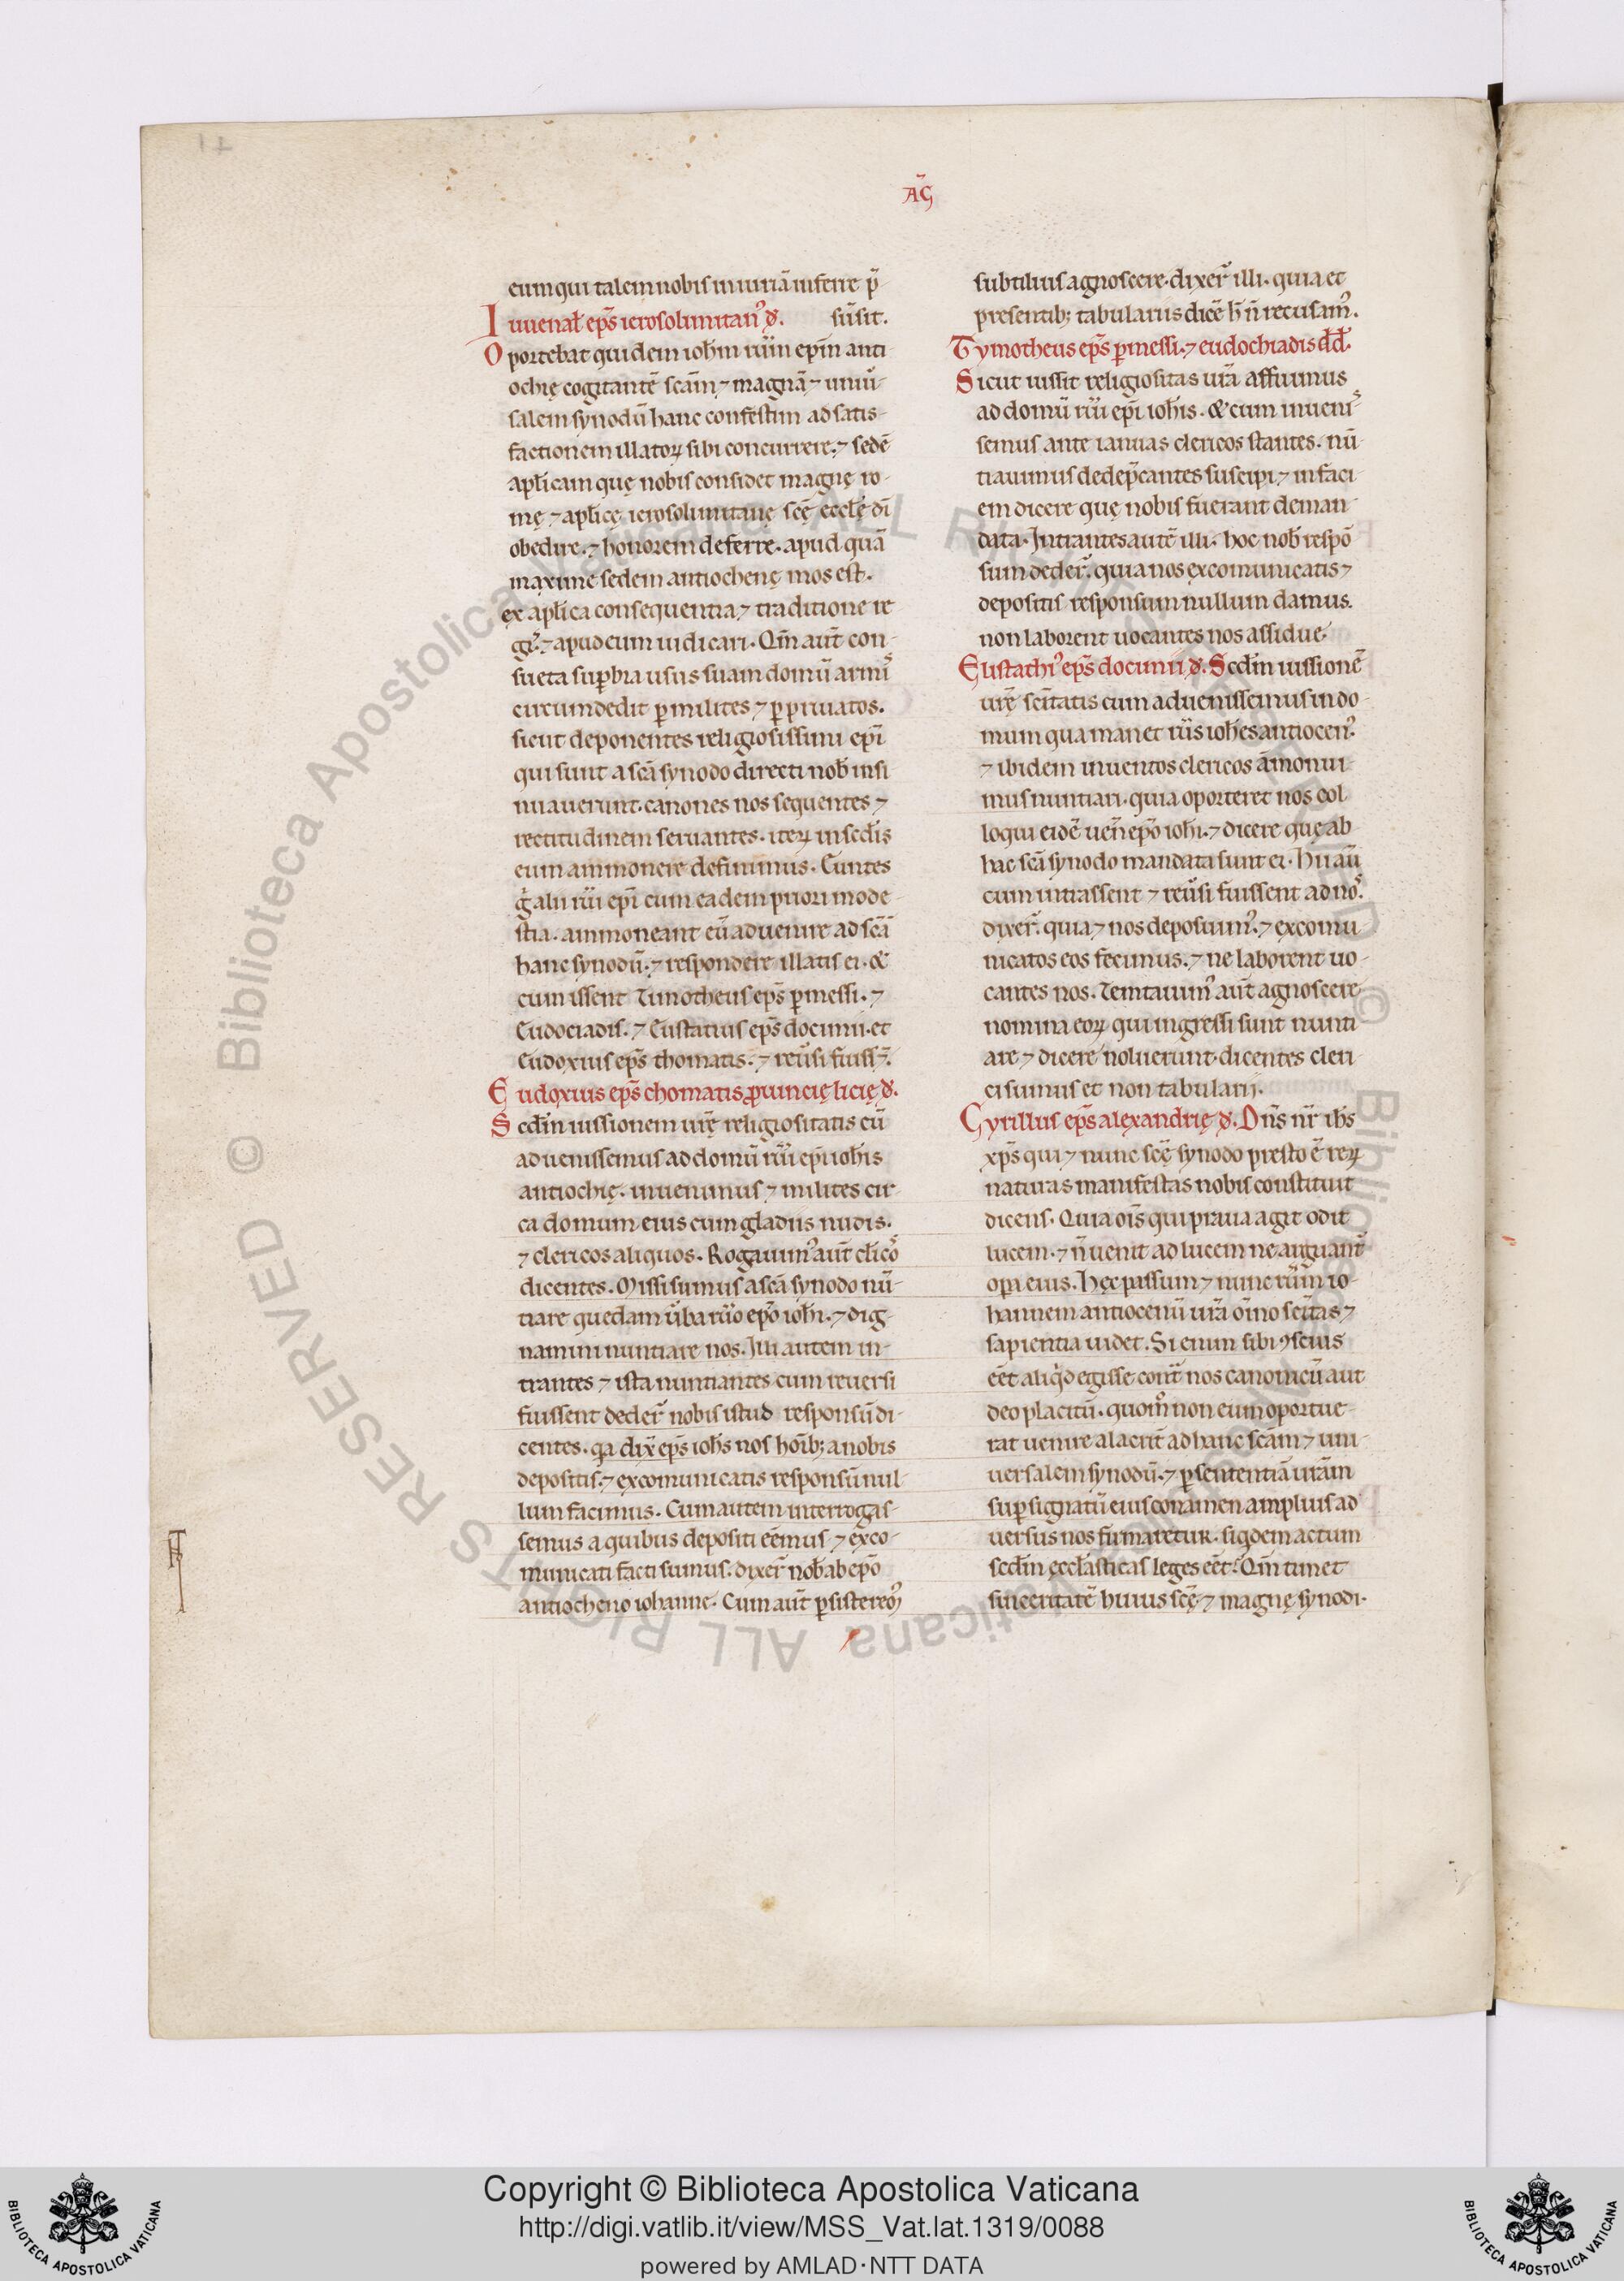 AG̃
eum qui talem nobis iniuriã inferre p̃
Iuuenal̃ ep̃s ierosolimitan᾽ ꝺ̃. sũsit.
Oportebat quidem ioh̃m rũm ep̃m anti
ochię cogitantẽ sc̃am ⁊ magnã ⁊ uniũ
salem synodũ hanc confestim ad satis
factionem illatoꝝ sibi concurrere. ⁊ sedẽ
apl̃icam quę nobis considet magnę ro
mę ⁊ apl̃icę ierosolimitanę sc̃ę eccl̃ę dĩ
obedire. ⁊ honorem deferre. apud quã
maxime sedem antiochenę mos est.
ex apl̃ica consequentia ⁊ traditione re
gi᾽. ⁊ apud eum iudicari. Qm̃ aut̃ con
sueta suꝑbia usus suam domũ armi᾽
circumdedit ꝑ milites ⁊ ꝑ priuatos.
sicut deponentes religiosissimi ep̃i
qui sunt a sc̃a synodo directi nob̃ insi
nuauerunt. canones nos sequentes ⁊
rectitudinem seruantes. iteꝝ in sed̃is
eum ammonere definimus. Euntes
g̃ alii rũi ep̃i cum eadem priori mode
stia. ammoneant eũ aduenire ad sc̃ã
hanc synodũ. ⁊ respondere illatis ei. &
cum issent Timotheus ep̃s ꝑmessi. ⁊
Eudociadis. ⁊ Eustatius ep̃s docimii. et
Eudoxius ep̃s thomatis. ⁊ reũsi fuiss⁊̃.
Eudoxius ep̃s chomatis ꝓuincię licię ꝺ̃.
Scd̃m iussionem ur̃ę religiositatis cũ
aduenissemus ad domũ rũi ep̃i ioh̃is
antiochię. inuenimus ⁊ milites cir
ca domum eius cum gladiis nudis.
⁊ clericos aliquos. Rogauim᾽ aut̃ cl̃ico᾽
dicentes. Missi sumus a sc̃a synodo nũ
tiare quedam ũba rũo ep̃o ioh̃i. ⁊ dig
namini nuntiare nos. Illi autem in
trantes ⁊ ista nuntiantes cum reuersi
fuissent deder̃ nobis istud responsũ di
centes. qa dix̃ ep̃s ioh̃s nos hoĩb; a nobis
depositis. ⁊ excomunicatis responsũ nul
lum facimus. Cum autem interrogas
semus a quibus depositi eẽmus ⁊ exco
municati facti sumus. dixer̃ nob̃ ab ep̃o
antiocheno iohanne. Cum aut̃ ꝑsisterem᾽
subtilius agnoscere. dixer̃ illi. quia et
presentib; tabulariis dicẽ h̃ ñ recusam᾽.
Tymotheus ep̃s ꝑmessi. ⁊ eudochiadis d̃d̃.
Sicut iussit religiositas ur̃a affuimus
ad domũ rũi ep̃i ioh̃is. & cum inueni᾽
semus ante ianuas clericos stantes. nũ
tiauimus dedep̃cantes suscipi ⁊ in faci
em dicere quę nobis fuerant deman
data. Intrantes autẽ illi. hoc nob̃ respõ
sum deder̃. quia nos excomunicatis ⁊
depositis responsum nullum damus.
non laborent uocantes nos assidue.
Eustathi᾽ ep̃s docimii ꝺ̃. Scd̃m iussionẽ
ur̃ę sc̃itatis cum aduenissemus in do
mum qua manet rũs ioh̃es antiocen᾽.
⁊ ibidem inuentos clericos ãmonui
mus nuntiari. quia oporteret nos col
loqui eidẽ ueñ ep̃o ioh̃i. ⁊ dicere quę ab
hac sc̃a synodo mandata sunt ei. Hii aũ
cum intrassent ⁊ reũsi fuissent ad no᾽.
dixer̃. quia ⁊ nos deposuim᾽. ⁊ excomu
nicatos eos fecimus. ⁊ ne laborent uo
cantes nos. Temtauim᾽ aut̃ agnoscere
nomina eoꝝ qui ingressi sunt nunti
are ⁊ dicere noluerunt. dicentes cleri
ci sumus et non tabularii.
Cyrillus ep̃s alexandrię ꝺ̃. Dñs nr̃ ih̃s
xp̃s qui ⁊ nunc sc̃ę synodo presto ẽ reꝝ
naturas manifestas nobis constituit
dicens. Quia oĩs qui praua agit odit
lucem. ⁊ ñ uenit ad lucem ne arguant̃
oꝑa eius. Hęc passum ⁊ nunc rũm io
hannem antiocenũ ur̃a oĩno sc̃itas ⁊
sapientia uidet. Si enim sibi ꝯscius
eẽt aliq̃d egisse cont̃ nos canonicũ aut
deo placitũ. quom̃ non eum oportue
rat uenire alacrit̃ ad hanc sc̃am ⁊ uni
uersalem synodũ. ⁊ ꝑ sententiã ur̃am
suꝑ signatũ eius conamen amplius ad
uersus nos firmaretur. siq̃dem actum
scd̃m eccl̃asticas leges eẽt. Qm̃ timet
sinceritatẽ huius sc̃ę ⁊ magnę synodi.
Copyright © Biblioteca Apostolica Vaticana
http://digi.vatlib.it/view/MSS_Vat.lat.1319/0088
powered by AMLAD·NTT DATA